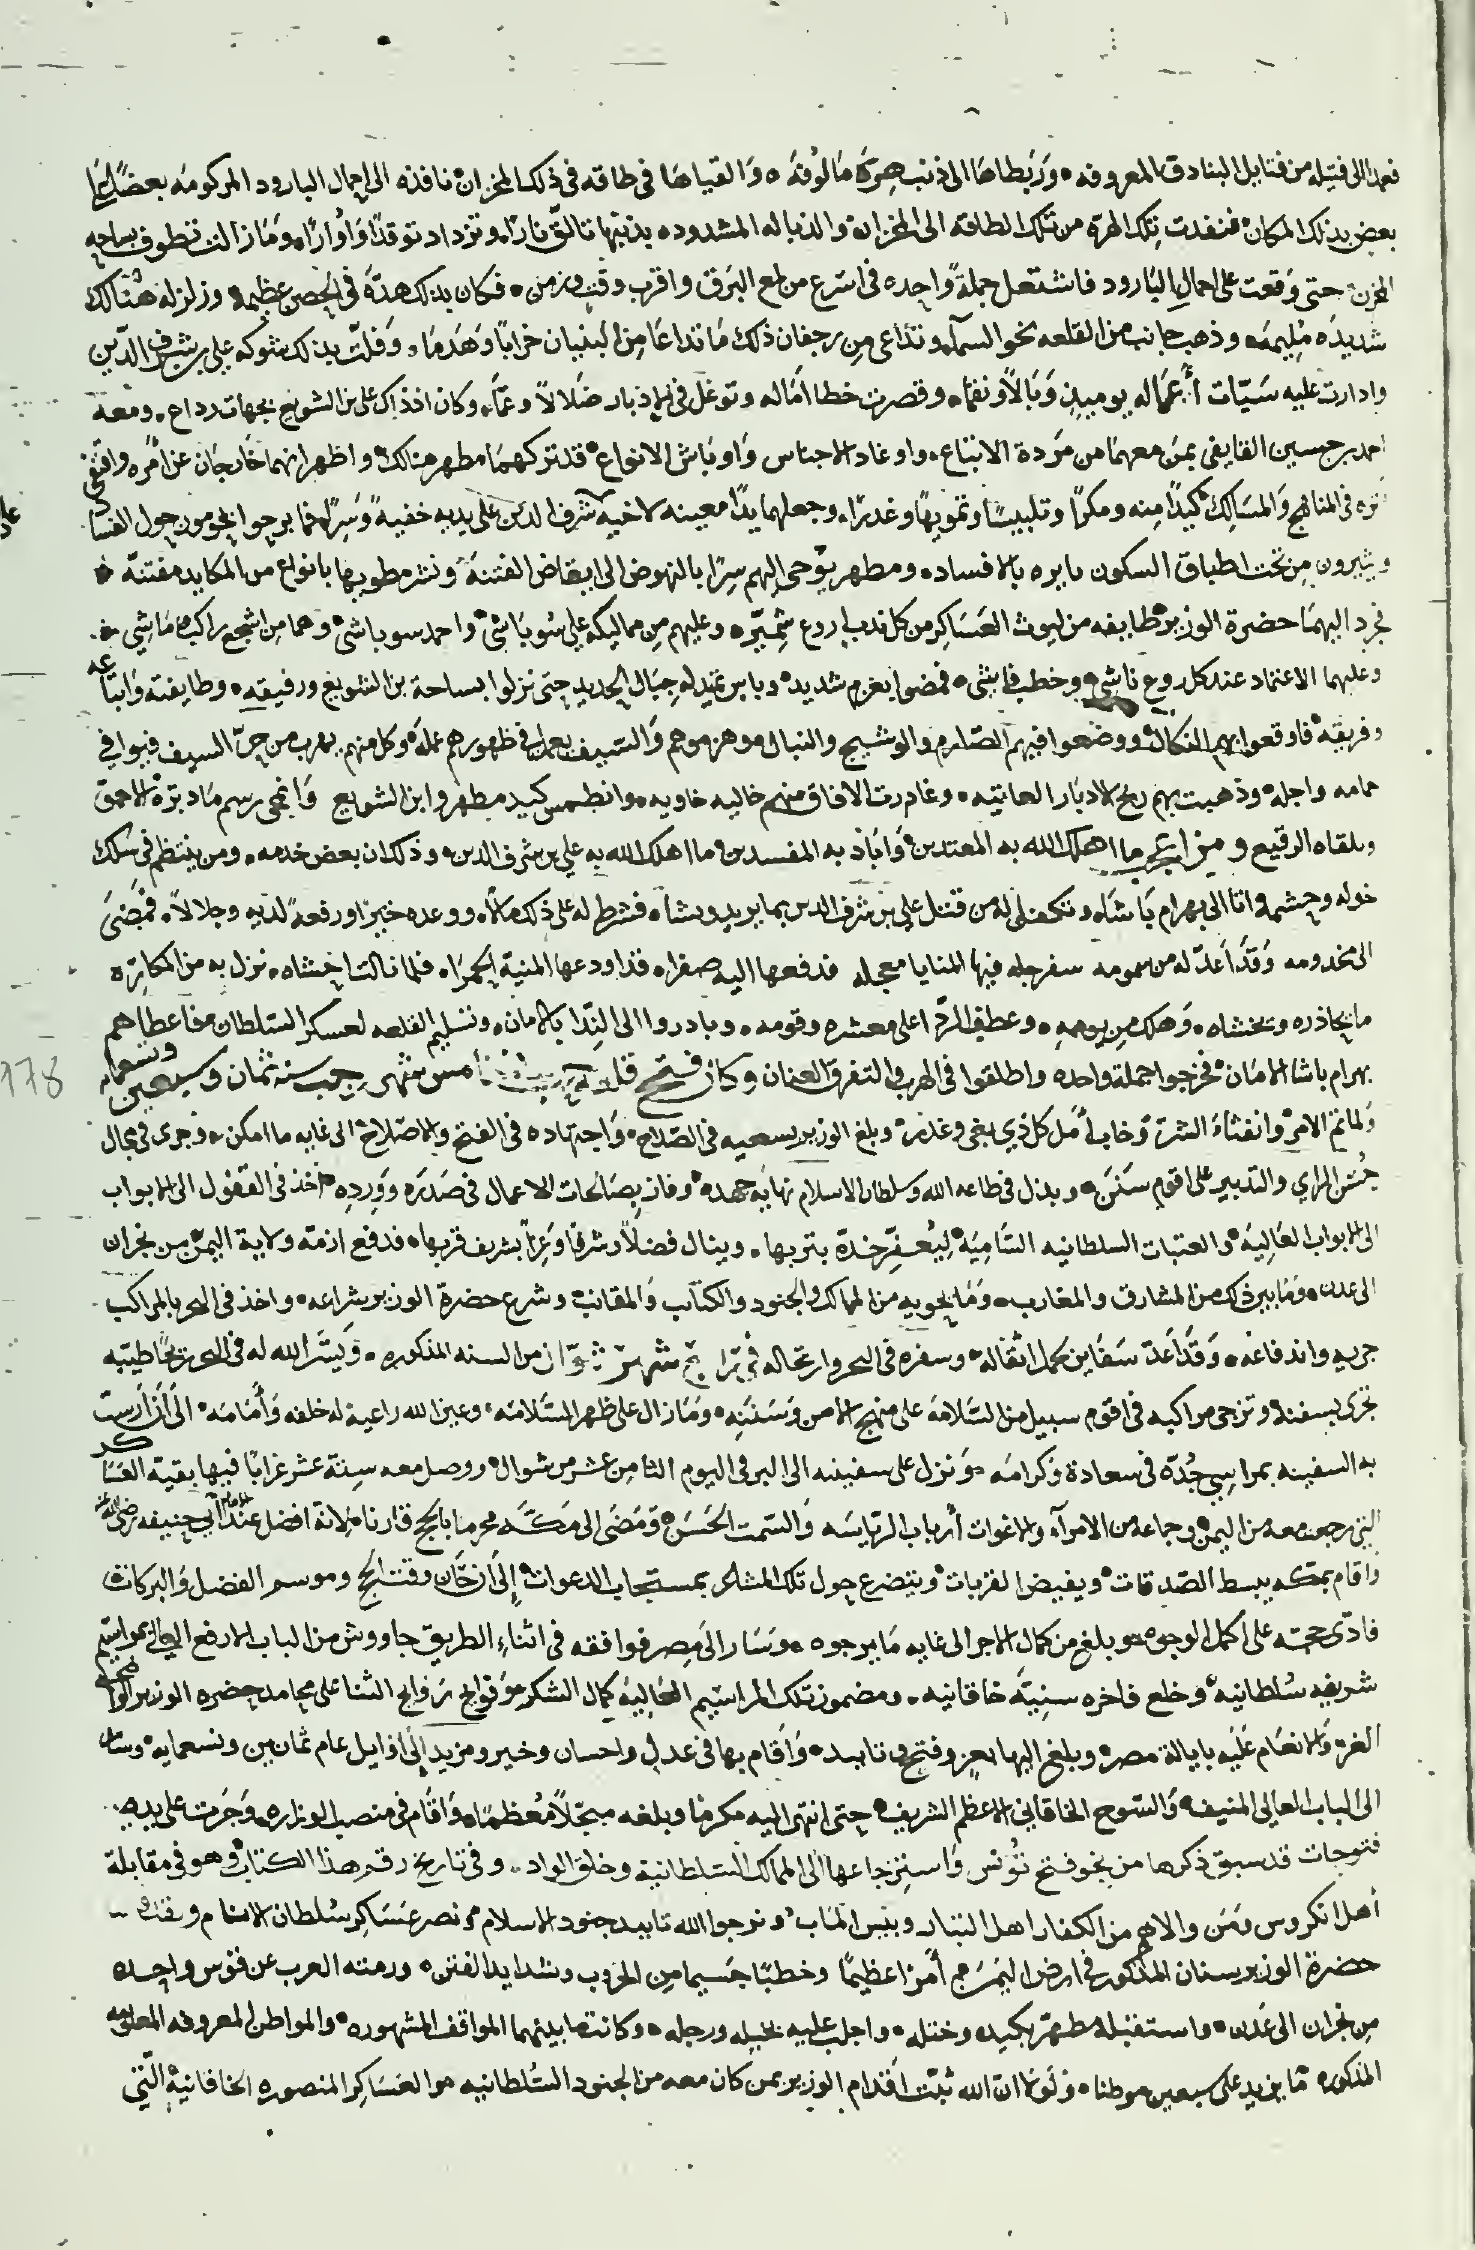 فعمدا الى فتيله من فتايل البنادق المعروفه وربطاها الى ذنب هرة مالوفة والقياها في طاقه في ذلك المخزان نافذه الى احمال البارود المركومه بعضها على
بعض بذلك المكان فنفذت تلك الهرة من تلك الطاقه الى المخزان والذباله المشدوده بذنبها تالق نارا وتزداد توقدا واوارا وما زالت تطوف بساحه
المخزن حتى وقعت على احمال البارود فاشتعل جملة واحده في اسرع من لمع البرق واقرب وقت وزمن فكان بذلك هدة في الحصن عظيمه وزلزله هنالك
شديده مليمه وذهب جانب من القلعه نحو السماء وتداعى من رجفان ذلك ما تداعا من البنيان خرابا وهدما وفلت بذلك شوكه علي بن شرف الدين
وادارت عليه سيات أعماله يوميذ وبالا ونقما وقصرت خطا اماله وتوغل في الادبار ضلالا وعما وكان اذ ذاك علي بن الشويع بجهات رداع ومعه
احمد بن حسين القايفي بمن معهما من مردة الاتباع واوغاد الاجناس واوباش الانواع قد تركهما مطهر هنالك واظهر انهما خارجان عن امره واقتفى
في المناهج والمسالك كيدا منه ومكرا وتلبيسا وتمويها وغدرا وجعلهما يدا معينه لاخيه شرف الدين علي يديه خفية وسرا فما برحوا يحومون حول الفساد
ويثيرون من تحت اطباق السكون بايره بالافساد ومطهر يوحي اليهم سرا بالنهوض الى ايقاض الفتنة ونشر مطويها بانواع من المكايد مفتنة
فجرد اليهما حضرة الوزير طايفه من ليوث العساكر من كل ندب اروع شمير وعليهم من مماليكه علي سوباشي واحمد سوباشي وهما من اشجع راكب وماشي
وعليهما الاعتماد عند كل روع ناشي وخطب فاشي فمضوا بعزم شديد وباس تميد له جبال الحديد حتى نزلوا بساحة بن الشويع ورفيقه وطايفته واتباعه
وفريقه فاوقعوا بهم النكال ووضعوا فيهم الصارم والوشيج والنبال وهزموهم والسيف يعمل في ظهورهم عمله وكل منهم يهرب من حر السيف فيوافي
حمامه واجله وذهبت بهم ريح الادبار العاتيه وغادرت الافاق منهم خاليه خاويه وانطمس كيد مطهر وابن الشويع وانمحى رسم ما دبره الاحمق
وتلقاه الرقيع ومن اعجب ما اهلك الله به المعتدين واباد به المفسدين ما اهلك الله به علي بن شرف الدين وذلك ان بعض خدمه ومن ينتظم في سلك
خوله وحشمه اتا الى بهرام باشاه وتكفل له من قتل علي بن شرف الدين بما يريد ويشاه فشرط له على ذلك مالا ووعده خيرا ورفعة لديه وجلالا فمضى
الى مخدومه وقد اعد له من سمومه سفرجله فيها المنايا معجله فدفعها اليه صفرا قد اودعها المنية الحمرا فلما نالت احشاه نزل به من المكاره
ما يحاذره ويخشاه وهلك من يومه وعطف الردا على معشره وقومه وبادروا الى الندا بالامان وتسليم القلعه لعسكر السلطان فاعطاهم
بهرام باشا الامان فخرجوا جملة واحده واطلقوا في الهرب والتفرق العنان وكان فتح قلعة حب خامس شهر رجب سنه ثمان وسبعين وتسعمايه
ولما تم الامر وانفثاء الشر وخاب أمل كل ذي بغي وغدر وبلغ الوزير بسعيه في الصلاح واجتهاده في الفتح والاصلاح الى غايه ما امكن وجرى في مجال
حسن الراي والتدبير على اقوم سنن وبذل في طاعه الله وسلطان الاسلام نهايه جهده وفاز بصالحات الاعمال في صدره وورده اخذ في القفول الى الابواب
الى الابواب العالية والعتبات السلطانيه السامية ليعفر خده بتربها وينال فضلا وشرفا وعزا بشريف قربها فدفع ازمة ولاية اليمن من نجران
الى عدن وما بين ذلك من المشارق والمغارب وما يحويه من الممالك والجنود والكتايب والمقانب وشرع حضرة الوزير بشراعه واخذ في البحر بالمراكب
جريه واندفاعه وقد اعد سفاين لحمل اثقاله وسفره في البحر وارتحاله في رابع شهر شوال من السنه المذكوره ويسر الله له في البحر ريحا طيبه
تجري بسفنه وتزجى مراكبه في اقوم سبيل من السلامه على منهج الامن وسننه وما زال على ظهر السلامه وعين الله راعية له خلفه وأمامه الى ان ارست
به السفينه بمراسي جده في سعادة وكرامه ونزل على سفينه الى البر في اليوم الثامن عشر من شوال ووصل معه ستة عشر غرابا فيها بقية العساكر
التي رجعت معه من اليمن وجماعه من الامرآء والاغوات أرباب الرياسه والسمت الحسن ومضى الى مكه محرما بالحج قارنا لانه افضل عند الامام أبي حنيفه رضي الله عنه
واقام بمكه يبسط الصدقات ويفيض القربات ويتضرع حول تلك المشاعر بمستجاب الدعوات إلى ان حان وقت الحج وموسم الفضل والبركات
فادى حجه على اكمل الوجوه وبلغ من كمال الاجر الى غايه ما يرجوه وسار الى مصر فوافقه في اثناء الطريق جاووش من الباب الارفع العالي بمراسيم
شريفه سلطانيه وخلع فاخره سنية خاقانيه ومضمون تلك المراسيم العالية كمال الشكر وفوايح روايح الثنا على محامد حضره الوزير الواضحه
الغره والانعام عليه بايالة مصر وبلغ اليها بعز وفتح وتاييد واقام بها في عدل واحسان وخير ومزيد إلى اوايل عام ثمانين وتسعمايه وسار
الى الباب العالي المنيف والسوح الخاقاني الاعظم الشريف حتى انتهى اليه مكرما وبلغه مبجلا معظما واقام في منصب الوزاره وجرت على يديه
فتوحات قد سبق ذكرها من نحو فتح تونس واسترجاعها الى الممالك السلطانية وخلق الواد وفي تاريخ رقم هذا الكتاب وهو في مقابلة
أهل انكروس ومن والاهم من الكفار اهل التبار وبيس الماب ونرجوا الله تاييد جنود الاسلام ونصر عساكر سلطان الانام
حضرة الوزير سنان المذكور في ارض اليمن أمرا عظيما وخطبا جسيما من الحروب وشدايد الفتن ورمته العرب عن قوس واحده
من نجران الى عدن واستقبله مطهر بكيده وختله واجلب عليه بخيله ورجله وكانت ما بينهما المواقف المشهوره والمواطن المعروفه المعلومه
المذكوره ما يزيد على سبعين موطنا ولولا ان الله ثبت اقدام الوزير بمن كان معه من الجنود السلطانيه والعساكر المنصوره الخاقانية التي